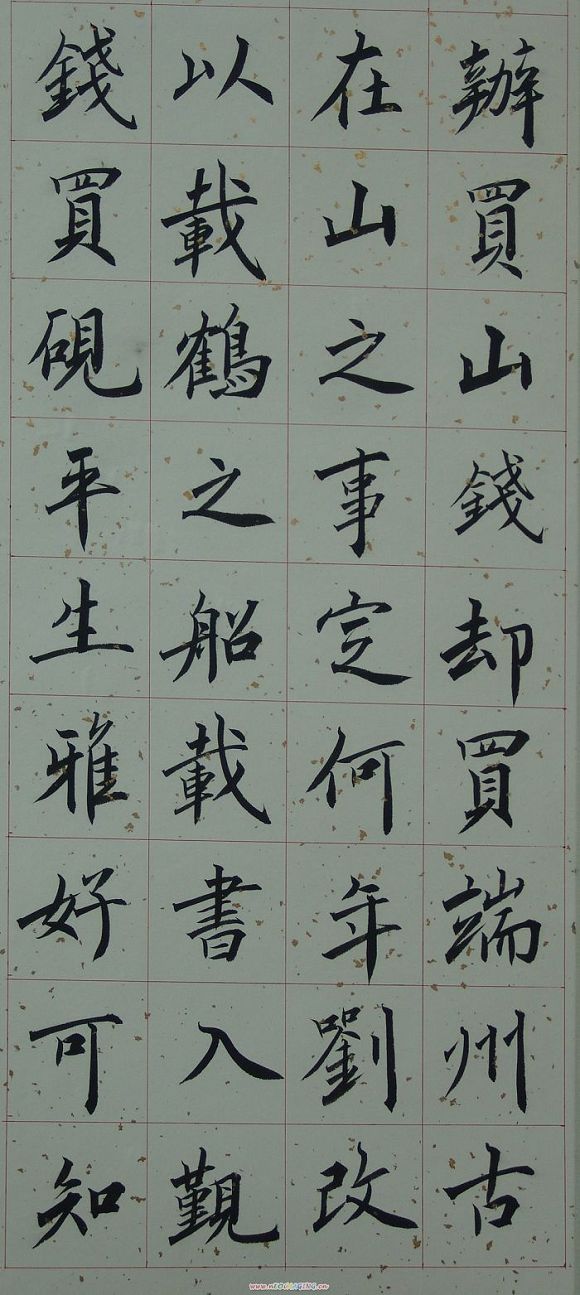 辦買山錢却買端州古
在山之事定何年劉改
以載鶴之船載書入觐
錢買硯平生雅好可知